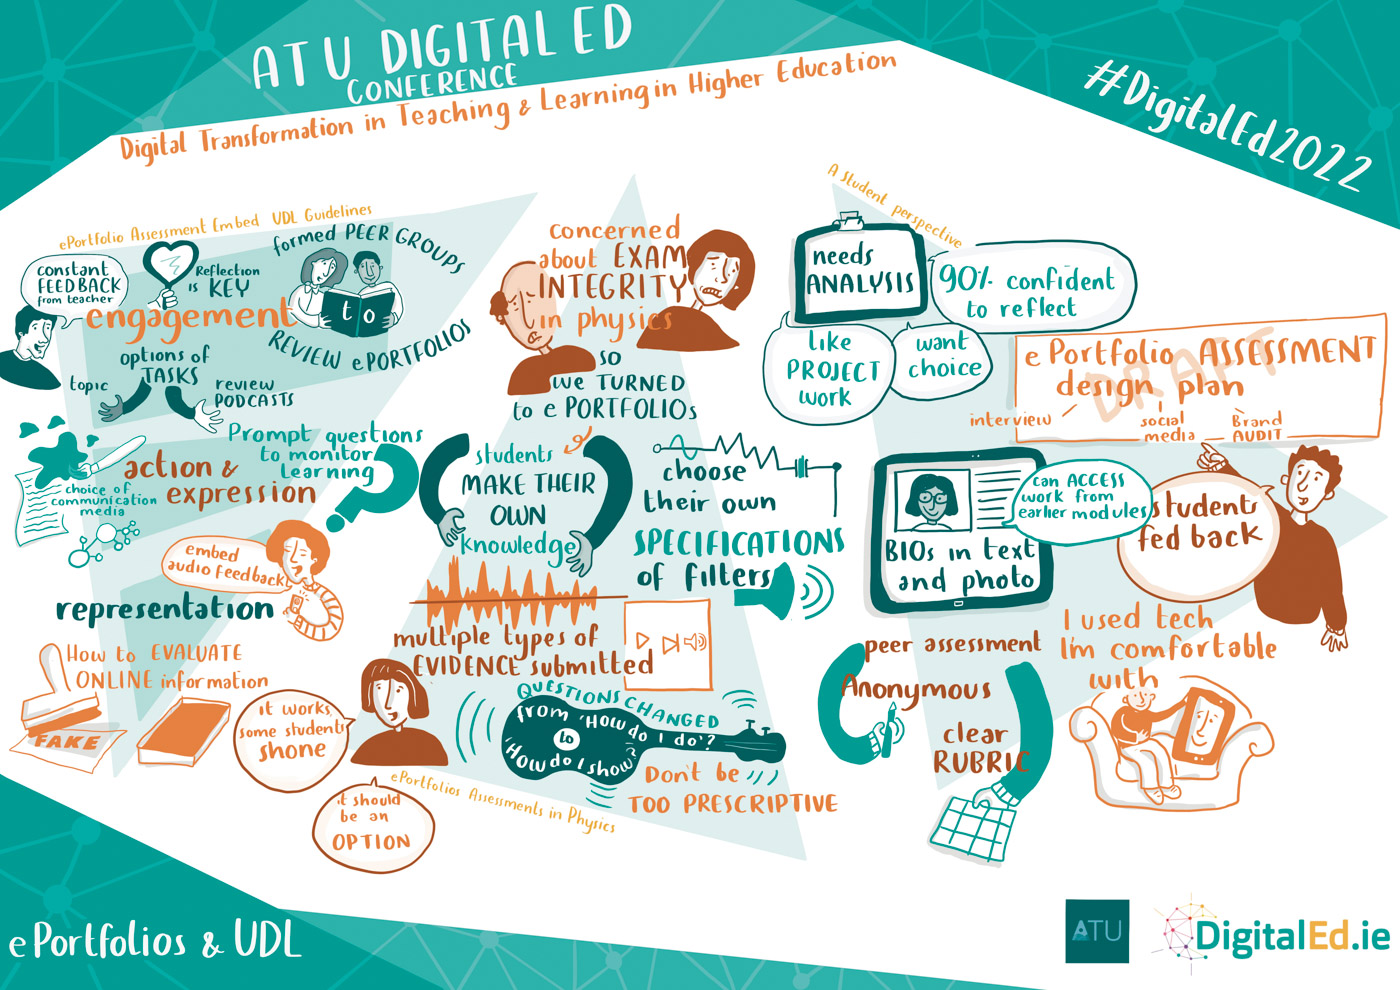 ATU DIGITAL ED
CONFERENCE
Digital Transformation in Teaching & Learning in Higher Education
#DigitalEd2022
ePortfolio Assessment Embed UDL Guidelines
constant
FEEDBACK
from teacher
Reflection
is KEY
formed PEER GROUPS
to
REVIEW ePORTFOLIOS
engagement
options of
TASKS
topic
review
PODCASTS
Prompt questions
to monitor
learning
action &
expression
choice of
communication
media
embed
audio feedback
representation
How to EVALUATE
ONLINE information
FAKE
it works,
some students
shone
it should
be an
OPTION
concerned
about EXAM
INTEGRITY
in physics
so
we TURNED
to e PORTFOLIOs
students
MAKE THEIR
OWN
knowledge
choose
their own
SPECIFICATIONS
of filters
multiple types of
EVIDENCE submitted
QUESTIONS CHANGED
from 'How do I do'?
to
'How do I show'?
Don't be
TOO PRESCRIPTIVE
ePortfolios Assessments in Physics
A Student perspective
needs
ANALYSIS
90% confident
to reflect
like
PROJECT
work
want
choice
e Portfolio ASSESSMENT
design plan
DRAFT
interview
social
media
Brand
AUDIT
can ACCESS
work from
earlier modules
BIOs in text
and photo
students
fed back
peer assessment
Anonymous
clear
RUBRIC
I used tech
I'm comfortable
with
e Portfolios & UDL
ATU
DigitalEd.ie